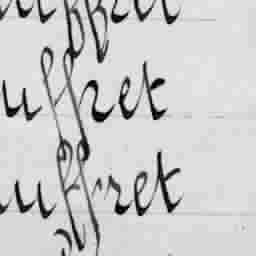 uffret
uffret
uffret